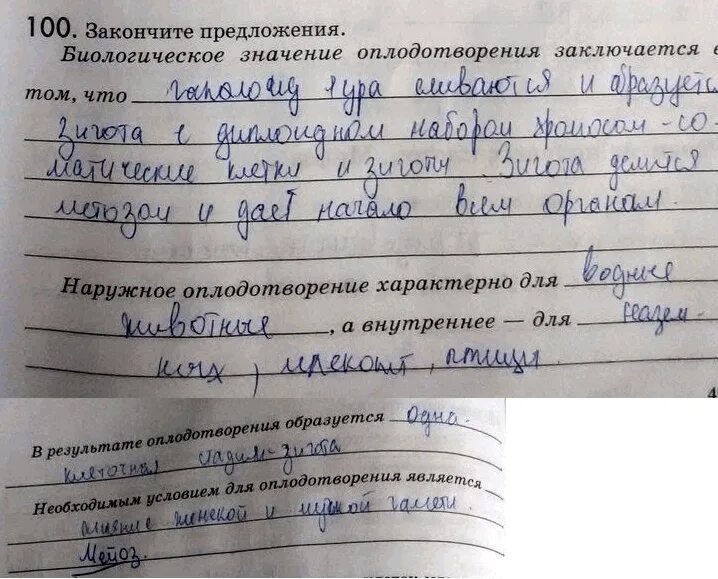 100. Закончите предложения.
Биологическое значение оплодотворения заключается в
том, что гаплоид ядра сливаются и образуется
зигота с диплоидном набором хромосом-со-
матические клетки и зиготы. Зигота делится
метозом и даёт начало всем органам.
Наружное оплодотворение характерно для водные
животные, а внутреннее — для назем-
ных, млекопит, птицы
4
В результате оплодотворения образуется одна-
клеточная стадия-зигота
Необходимым условием для оплодотворения является
слияние женской и мужской гаметы.
Мейоз.